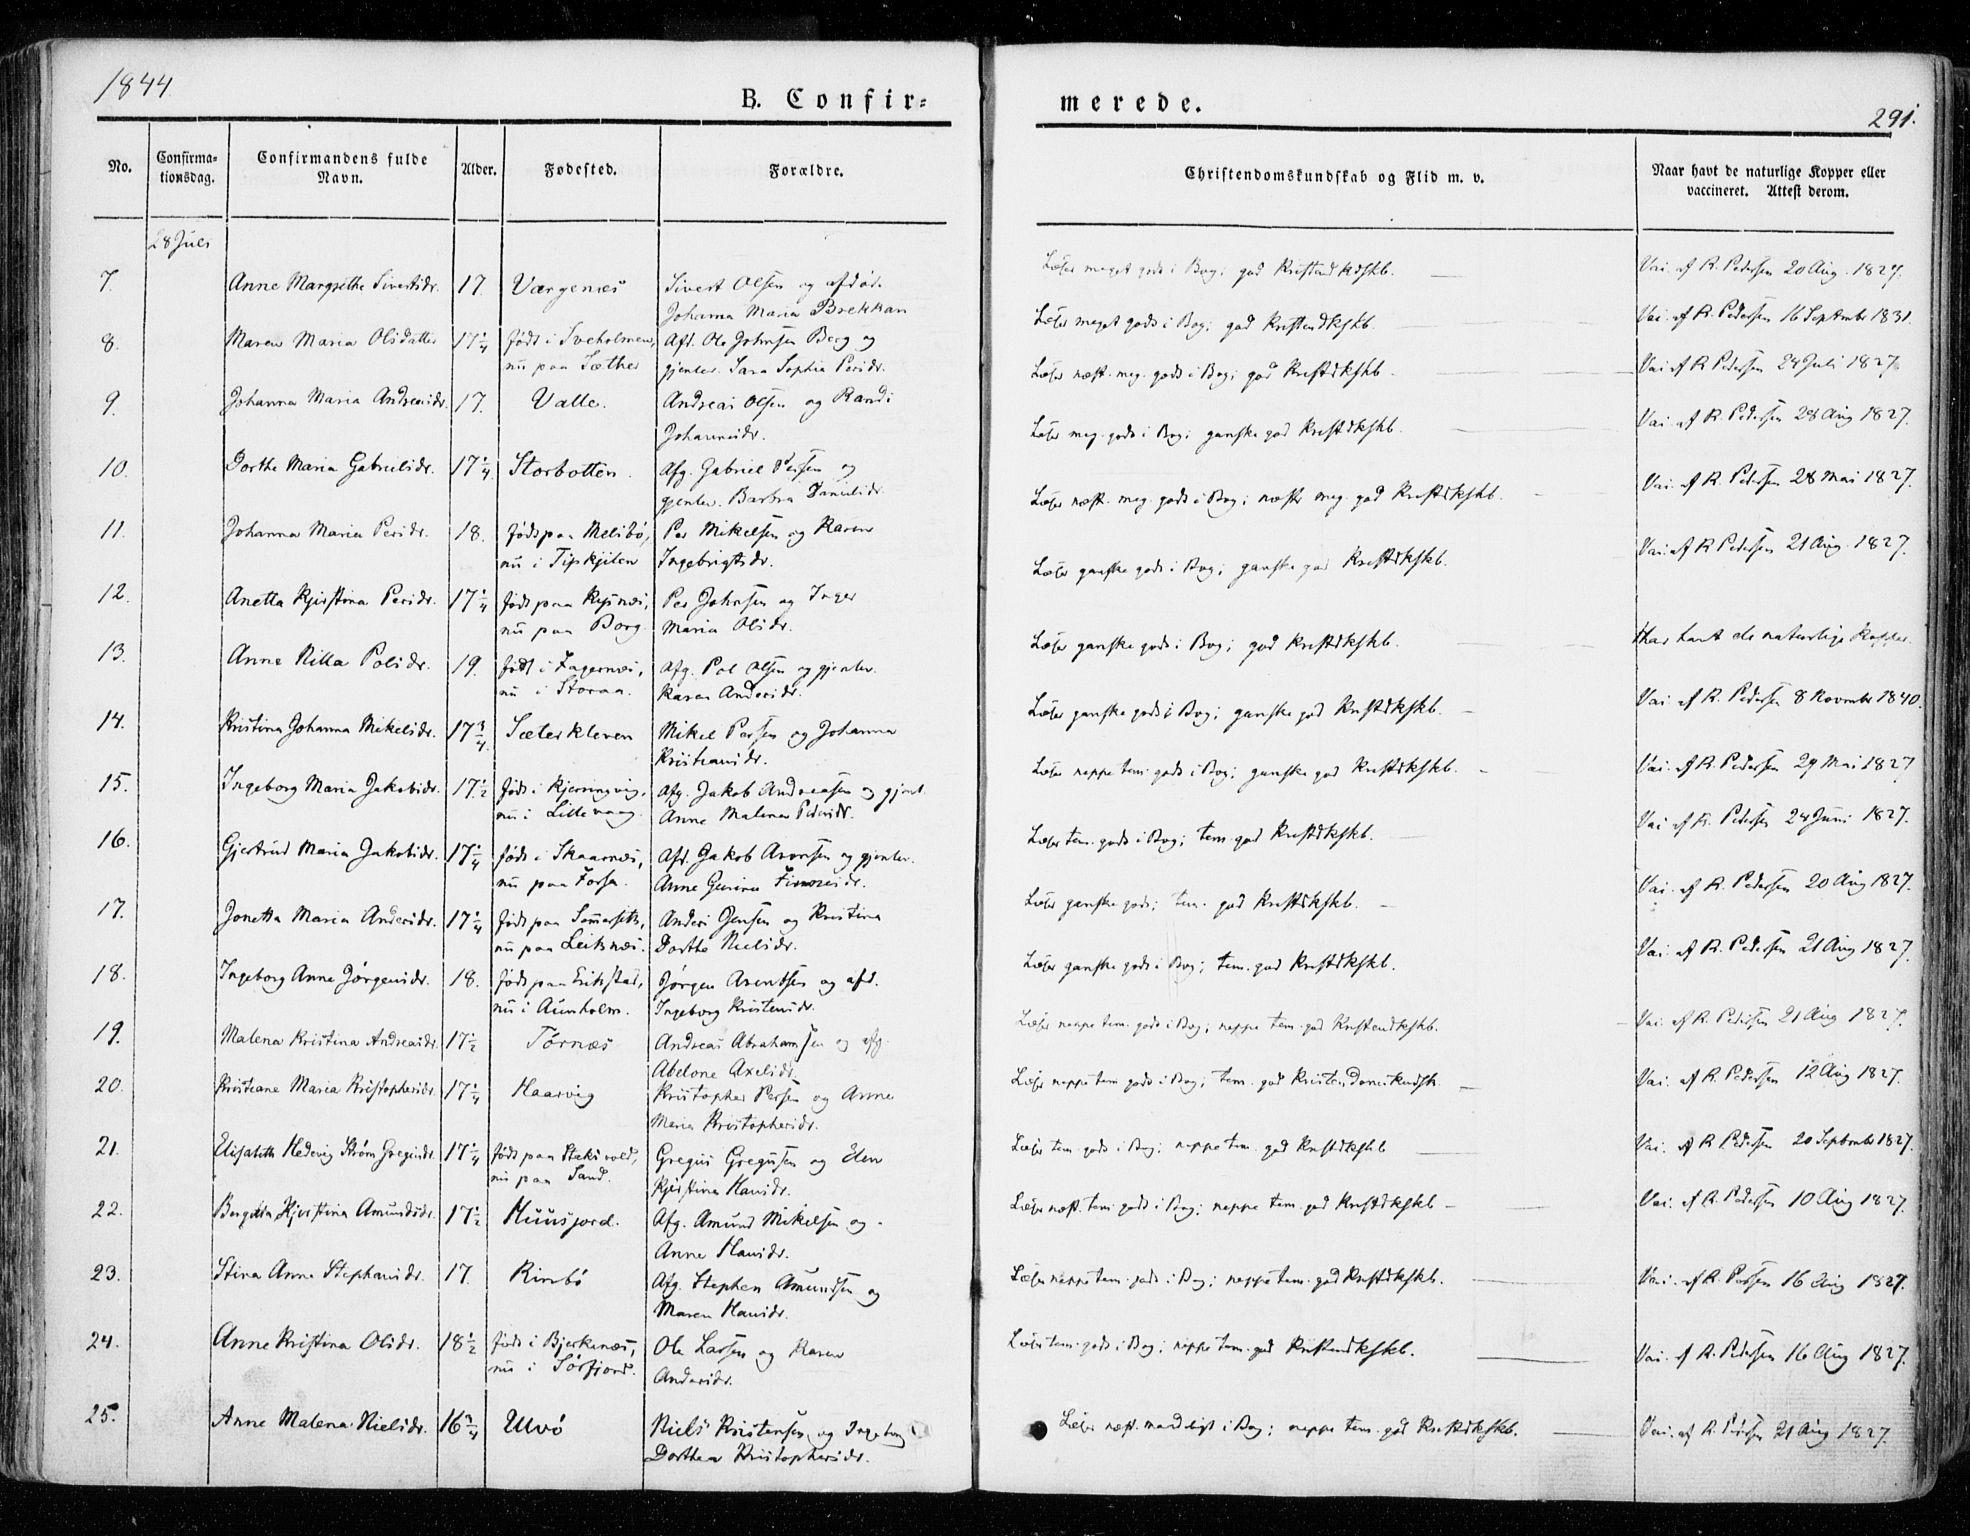 1844
B. Confir=
merede.
291.
No.
Confirma-
tionsdag.
Confirmandens fulde
Navn.
Alder.
Fødested.
Forældre.
Christendomskundskab og Flid m. v.
Naar havt de naturlige Kopper eller
vaccineret. Attest derom.
28 Juli
7. Anne Margrethe Sivertsdr. 17. Værgenes Sivert Olsen og afdøde
Johanna Maria Brekkan
Læser meget godt i Bog; god Kristendkdskb. Vai. af R. Pedersen 20 Aug. 1827.
8. Maren Maria Olsdatter 17 1/4 født i Sveholmen, Afd. Ole Johnsen Berg og
nu paa Sæther gjenlev. Sara Sophia Persdr.
Læser meget godt i Bog; god Kristendkskb. Vai. af R. Pedersen 16 September 1831.
9. Johanna Maria Andreasdr. 17. Valle. Andreas Olsen og Randi
Johannesdr.
Læser næst. meg. godt i Bog; god Kristdkskb. Vai. af R. Pedersen 24 Juli 1827.
10. Dorthe Maria Gabrielsdr. 17 1/4 Storbotten. Afg. Gabriel Persen og
gjenlev. Barbra Danielsdr.
Læser meg. godt i Bog; ganske god Kristdkskb. Vai. af R. Pedersen 28 Aug 1827.
11. Johanna Maria Persdr. 18. født paa Melsbø, Per Mikelsen og Karen
nu i Tipkjilen Ingebrigtsdr.
Læser næst. meg. godt i Bog; næster meg. god Kristdkskb. Vai. af R. Pedersen 28 Mai 1827.
12. Anetta Kjirstina Persdr. 17 1/4 født paa Rysnes, Per Johnsen og Inger
nu paa Borg. Maria Olsdr.
Læser ganske godt i Bog; ganske god Kristdkskb. Vai. af R. Pedersen 21 Aug. 1827.
13. Anne Nilla Polsdr. 19. født i Fagernes, Afg. Pol Olsen og gjenlev.
nu i Storaa. Karen Andersdr.
Læser ganske godt i Bog; god Kristdkskb. Har havt de naturlige Kopper.
14. Kristina Johanna Mikelsdr. 17 3/4 Sæterkleven Mikel Persen og Johanna
Kristiansdr.
Læser ganske godt i Bog; ganske god Kristdkskb. Vai. af R. Pedersen 8 November 1840.
15. Ingeborg Maria Jakobsdr. 17 1/2 født i Kjerringvig, Afg. Jakob Andreasen og gjenl.
nu i Lillevaag. Anne Malena Pedersdr.
Læser neppe tem. godt i Bog; ganske god Kristdkskb. Vai. af R. Pedersen 29 Mai 1827
16. Gjertrud Maria Jakobsdr. 17 1/4 født i Skaarnes, Afd. Jakob Aronsen og gjenlev.
nu paa Forsa. Anne Gurina
Læser tem. godt i Bog; tem. god Kristdkskb. Vai af R. Pedersen 24 Juni 1827.
17. Jonetta Maria Andersdr. 17 1/4 født paa Sommerseth, Anders Jensen og Kristina
nu paa Leiknes. Dorthe Nielsdr.
Læser ganske godt; tem. god Kristdkskb. Vai. af R. Pedersen 20 Aug 1827.
18. Ingeborg Anne Jørgensdr. 18. født paa Erikstad, Jørgen Arentsen og afd.
nu i Aunholm. Ingeborg Kristensdr.
Læser ganske godt i Bog; tem. god Kristdkskb. Vai. af R. Pedersen 21 Aug 1827.
19. Malena Kristina Andreasdr. 17 1/2 Tørnæs Andreas Abrahamsen og afg.
Abelone Axelsdr.
Læser neppe tem. godt i Bog; neppe tem. god Kristendkskb. Vai. af R. Pedersen 21 Aug 1827.
20. Kristiane Maria Kristophersdr. 17 1/4 Haarvig Kristopher Persen og Anne
Maria Kristophersdr.
Læser neppe tem godt i Bog; tem. god Kristendomskundsk. Vai. af R. Pedersen 12 Aug 1827.
21. Elisabeth Hedevig Strøm Gregusdr. 17 1/4 født paa Staksvold, Gregus Gregusen og Elen
nu paa Sand. Kjirstina Hansdr.
Læser tem. godt i Bog; neppe tem. god Kristdkskb Vai. af R Pedersen 20 September 1827.
22. Bergitta Kjirstina Amundsdr. 17 1/2 Huusjord. Afg. Amund Mikelsen og
Anne Hansdr.
Læser næst. tem. godt i Bog; neppe tem. god Kristdkskb Vai. af R. Pedersen 10 Aug 1827.
23. Stina Anne Stephansdr. 17. Rinbø Afg. Stephen Amundsen og
Maren Hansdr.
Læser neppe tem. godt i Bog; neppe tem. god Kristdkskb. Vai. af R. Persen 16 Aug 1827.
24. Anne Kristina Olsdr. 18 1/2 født i Bjerkenes, Ole Larsen og Karen
nu i Sørfjord. Andersdr.
Læser tem. godt i Bog; neppe tem. god Kristendkskb. Vai. af R. Pedersen 16 Aug 1827.
25. Anne Malena Nielsdr. 16 3/4 Ulvø Niels Kristensen og Ingeborg
Dorthea Kristophersdr.
Læser næst. maadeligt i Bog; neppe tem. god Kristdkskb. Vai. af R. Pedersen 21 Aug 1827.